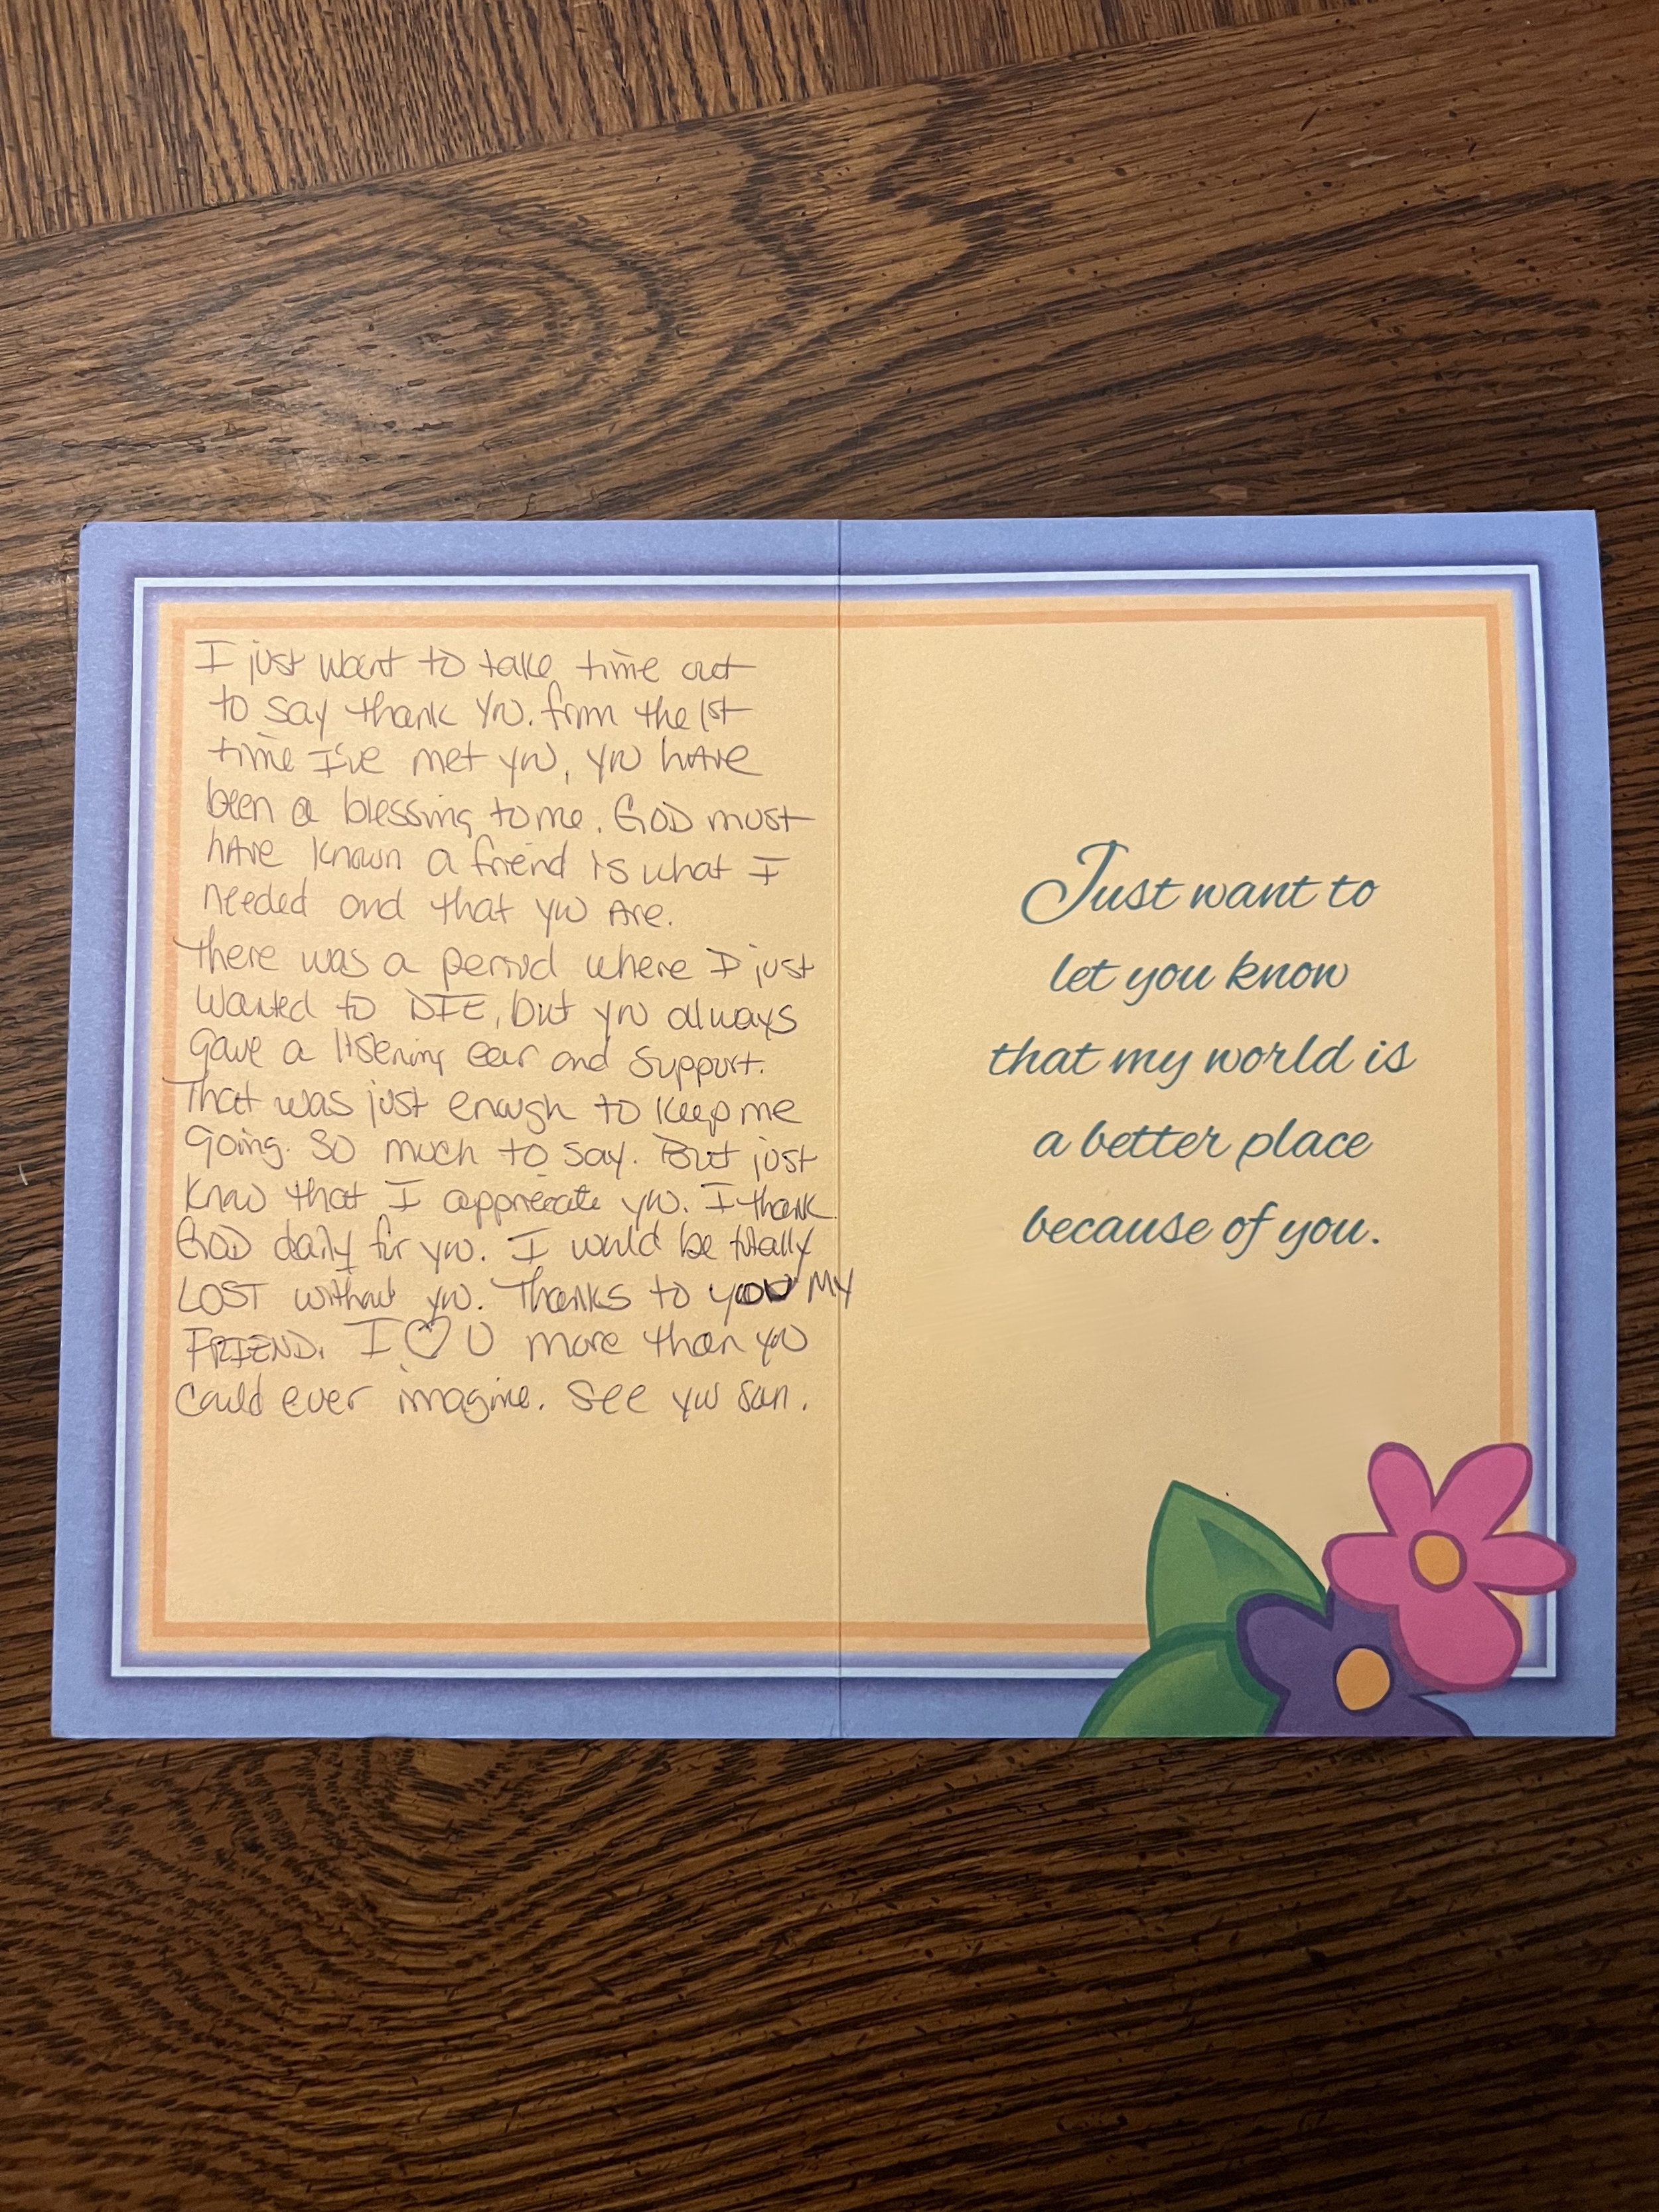 I just want to take time out
to say thank you. from the 1st
time I've met you, you hAve
been a blessing to me. GOD must
hAve known a friend is what I
needed and that you Are.
There was a period where I just
wanted to DIE, but you always
gave a listening ear and support.
That was just enough to keep me
going. So much to say. But just
know that I appreciate you. I thank
GOD daily for you. I would be totally
LOST without you. Thanks to you MY
FRIEND. I ♡ U more than you
could ever imagine. See you soon.
Just want to
let you know
that my world is
a better place
because of you.